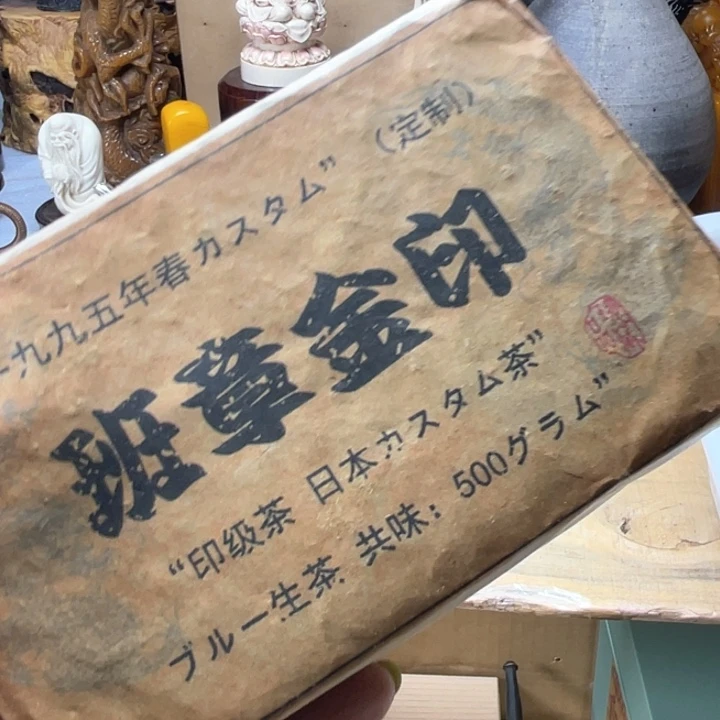 一九九五年春カスタム”（定制）
班章金印
“印级茶 日本カスタム茶”
ブルー生茶 共味：500グラム”